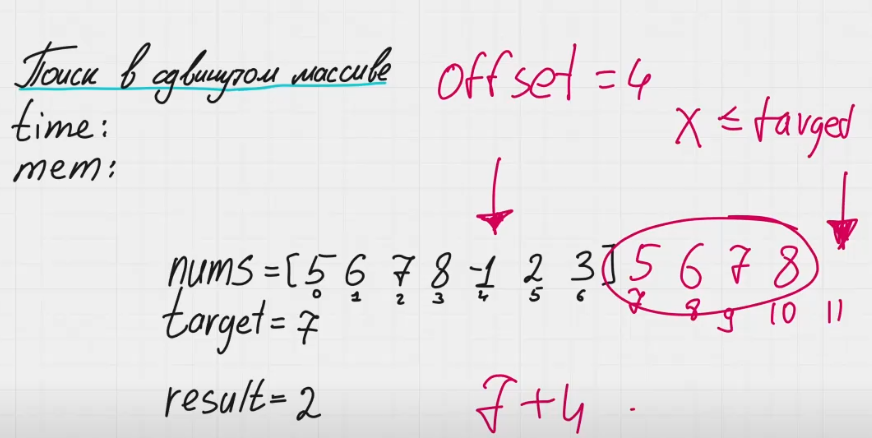 Поиск в сдвинутом массиве
offset = 4
time:
x ≤ targed
mem:
nums = [5 6 7 8 -1 2 3] 5 6 7 8
0 1 2 3 4 5 6 7 8 9 10 11
target = 7
result = 2
7 + 4